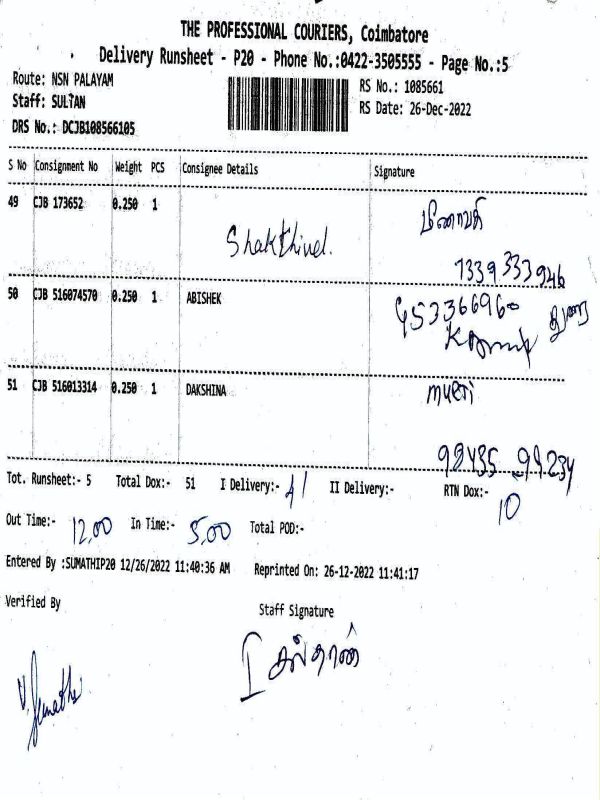 THE PROFESSIONAL COURIERS, Coimbatore
Delivery Runsheet - P20 - Phone No.:0422-3505555 - Page No.:5
Route: NSN PALAYAM
RS No.: 1085661
Staff: SULTAN
RS Date: 26-Dec-2022
DRS No.: DCJB108566105
S No Consignment No Weight PCS Consignee Details Signature
49 CJB 173652 0.250 1 Shakthivel. மீனாவதி
7339 333 946
50 CJB 516074570 0.250 1 ABISHEK 953366960 துரை
51 CJB 516013314 0.250 1 DAKSHINA
92435 99234
Tot. Runsheet:- 5 Total Dox:- 51 I Delivery:- 41 II Delivery:- RTN Dox:- 10
Out Time:- 12.00 In Time:- 5.00 Total POD:-
Entered By :SUMATHIP20 12/26/2022 11:40:36 AM Reprinted On: 26-12-2022 11:41:17
Verified By Staff Signature
V. Sumathi